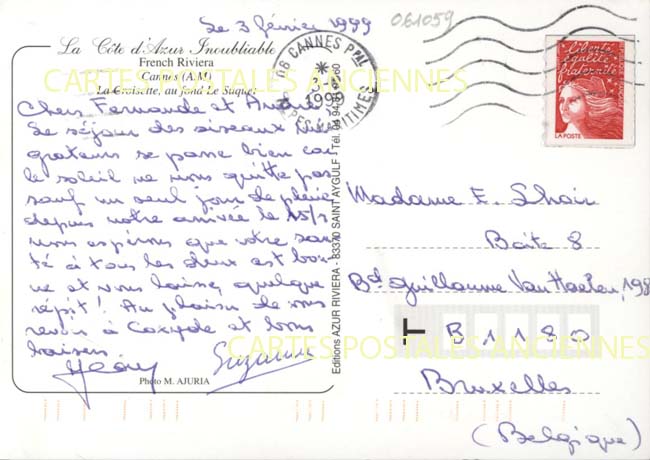 Le 3 février 1999
061059
La Côte d'Azur Inoubliable
French Riviera
Cannes (A.M)
La Croisette, au fond Le Suquet
CARTES POSTALES ANCIENNES
06 CANNES PPAL
1999
ALPES MARITIMES
Liberté
égalité
fraternité
LA POSTE
Chers Fernande et
Le séjour des oiseaux mi
grateurs se passe bien car
le soleil ne nous quitte pas
sauf un seul jour de pluie
depuis notre arrivée le 15/1
nous espérons que votre san
té à tous les deux est bon
ne et vous laisse quelque
répit! Au plaisir de vous
revoir à Coxyde et bons
baisers
Suzanne
Photo M. AJURIA
Editions AZUR RIVIERA - 83370 SAINT AYGULF - Tél. 04 94
Madame E.
Boîte 8
Bd Guillaume Van Haelen, 198
T B 1 1 8 0
CARTES POSTALES ANCIENNES
Bruxelles
(Belgique)